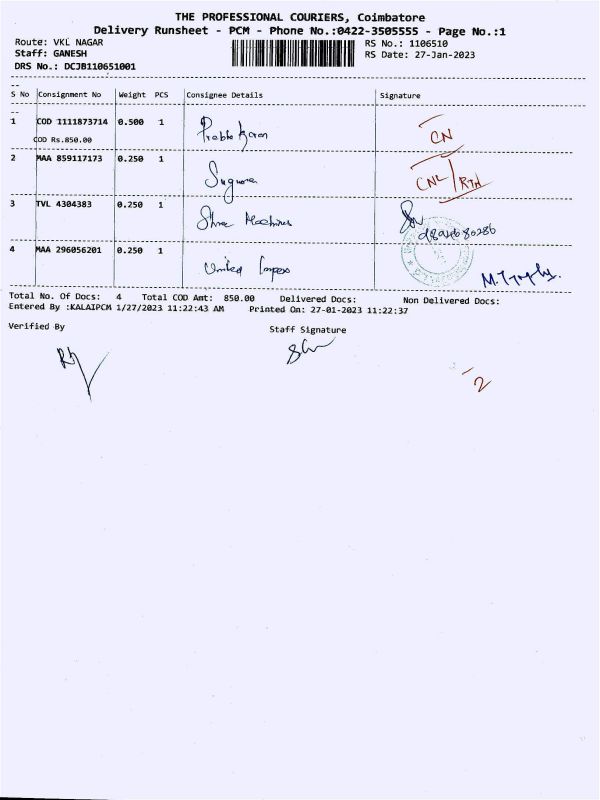 THE PROFESSIONAL COURIERS, Coimbatore
Delivery Runsheet - PCM - Phone No.:0422-3505555 - Page No.:1
Route: VKL NAGAR RS No.: 1106510
Staff: GANESH RS Date: 27-Jan-2023
DRS No.: DCJB110651001
S No Consignment No Weight PCS Consignee Details Signature
1 COD 1111873714 0.500 1 Prabhakaran CN
COD Rs.850.00
2 MAA 859117173 0.250 1 Suguna CNL/RTH
3 TVL 4304383 0.250 1 Shree Machines
4 MAA 296056201 0.250 1 United Impex
Total No. Of Docs: 4 Total COD Amt: 850.00 Delivered Docs: Non Delivered Docs:
Entered By :KALAIPCM 1/27/2023 11:22:43 AM Printed On: 27-01-2023 11:22:37
Verified By Staff Signature
- 2